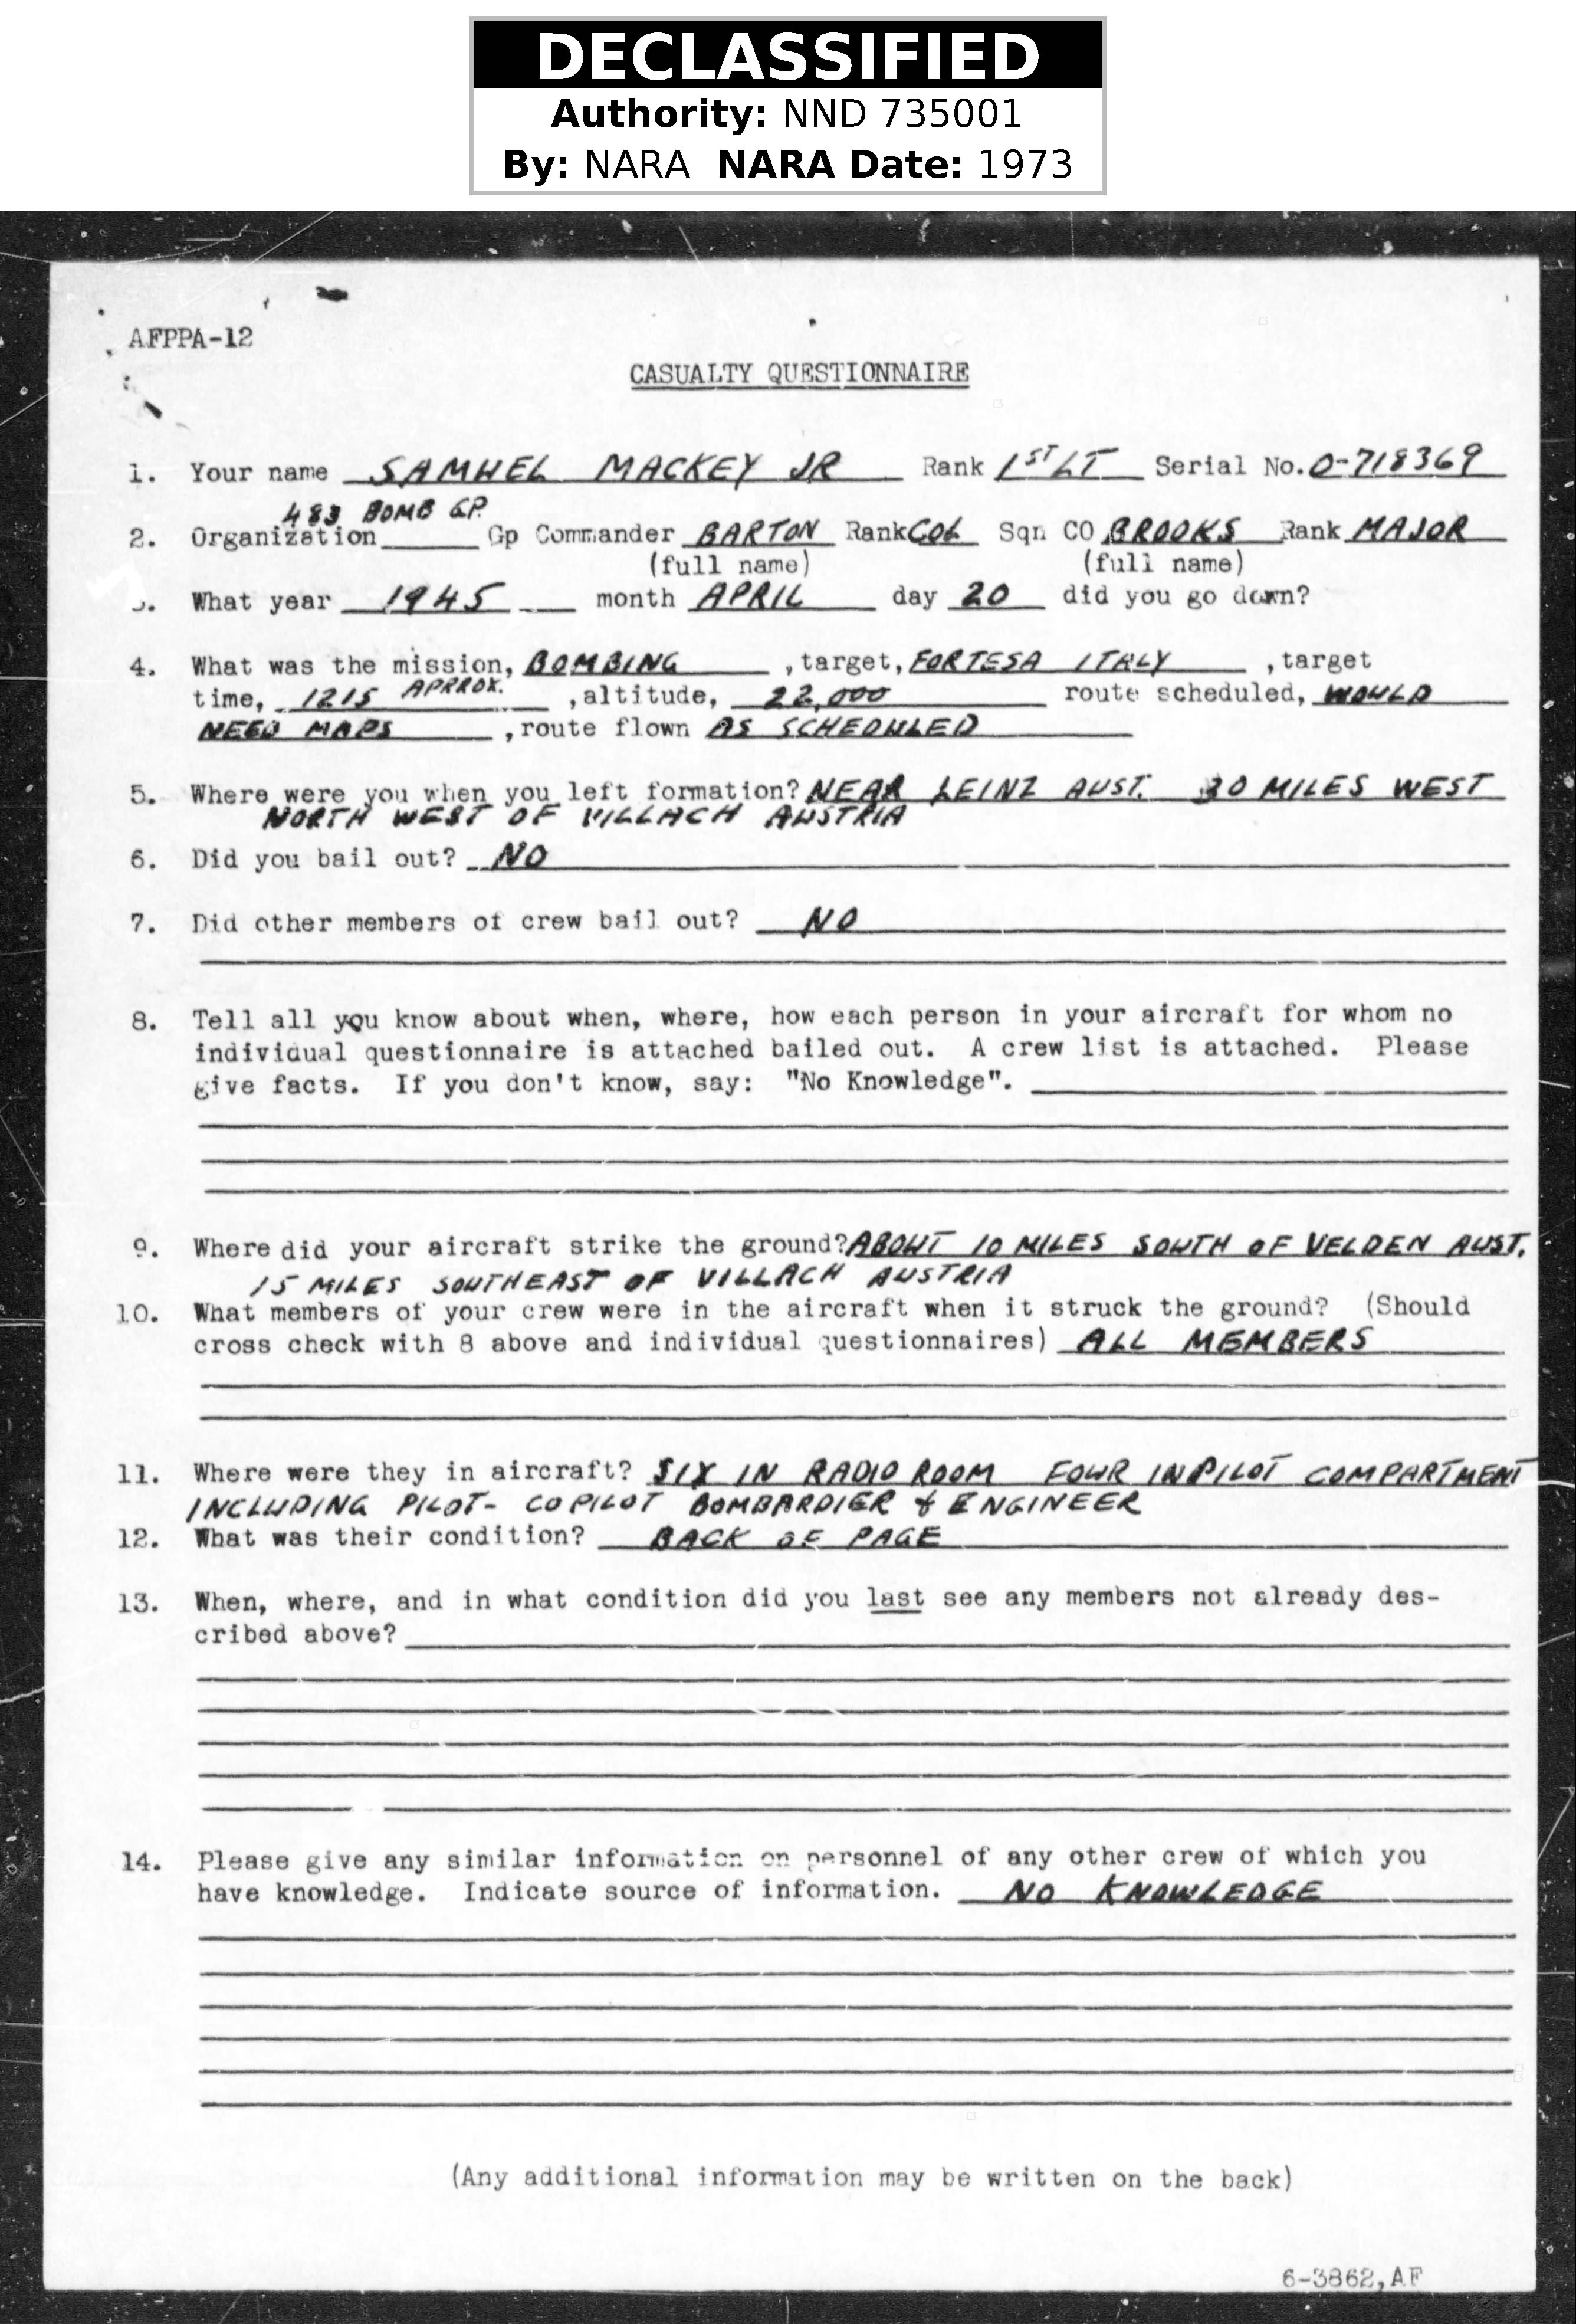 DECLASSIFIED
Authority: NND 735001
By: NARA NARA Date: 1973
AFPPA-12
CASUALTY QUESTIONNAIRE
1. Your name SAMUEL MACKEY JR Rank 1ST LT Serial No. O-718369
483 BOMB GP.
2. Organization Gp Commander BARTON Rank COL Sqn CO BROOKS Rank MAJOR
(full name) (full name)
3. What year 1945 month APRIL day 20 did you go down?
4. What was the mission, BOMBING , target, FORTESA ITALY , target
time, 1215 APRROX. , altitude, 22,000 route scheduled, WOULD
NEED MAPS , route flown AS SCHEDULED
5. Where were you when you left formation? NEAR LEINZ AUST. 30 MILES WEST
NORTH WEST OF VILLACH AUSTRIA
6. Did you bail out? NO
7. Did other members of crew bail out? NO
8. Tell all you know about when, where, how each person in your aircraft for whom no
individual questionnaire is attached bailed out. A crew list is attached. Please
give facts. If you don't know, say: "No Knowledge".
9. Where did your aircraft strike the ground? ABOUT 10 MILES SOUTH OF VELDEN AUST.
15 MILES SOUTHEAST OF VILLACH AUSTRIA
10. What members of your crew were in the aircraft when it struck the ground? (Should
cross check with 8 above and individual questionnaires) ALL MEMBERS
11. Where were they in aircraft? SIX IN RADIO ROOM FOUR IN PILOT COMPARTMENT
INCLUDING PILOT- COPILOT BOMBARDIER & ENGINEER
12. What was their condition? BACK OF PAGE
13. When, where, and in what condition did you last see any members not already des-
cribed above?
14. Please give any similar information on personnel of any other crew of which you
have knowledge. Indicate source of information. NO KNOWLEDGE
(Any additional information may be written on the back)
6-3862,AF